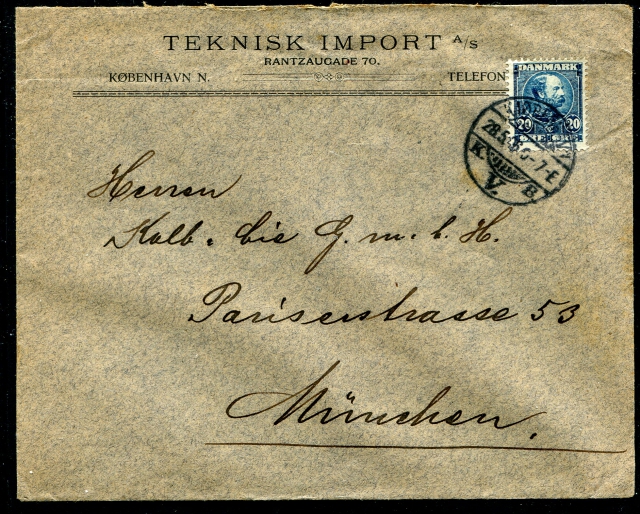 TEKNISK IMPORT A/S
RANTZAUGADE 70.
KØBENHAVN N. TELEFON
DANMARK
20 20
28.5. 6-7 E
K. B.
V.
Herren
Kolb. & Cie G. m. b. H.
Pariserstrasse 53
München.